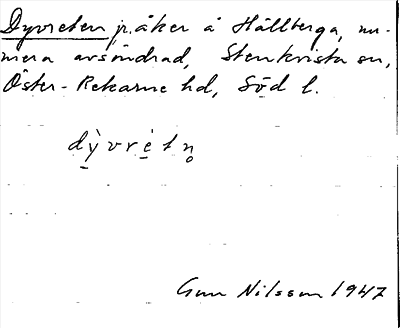 Dyvreten på åker å Hållberga, nu-
mera avsöndrad, Stenkvista sn,
Öster-Rekarne hd, Söd l.
dỳvrétn̥
Gun Nilsson 1947